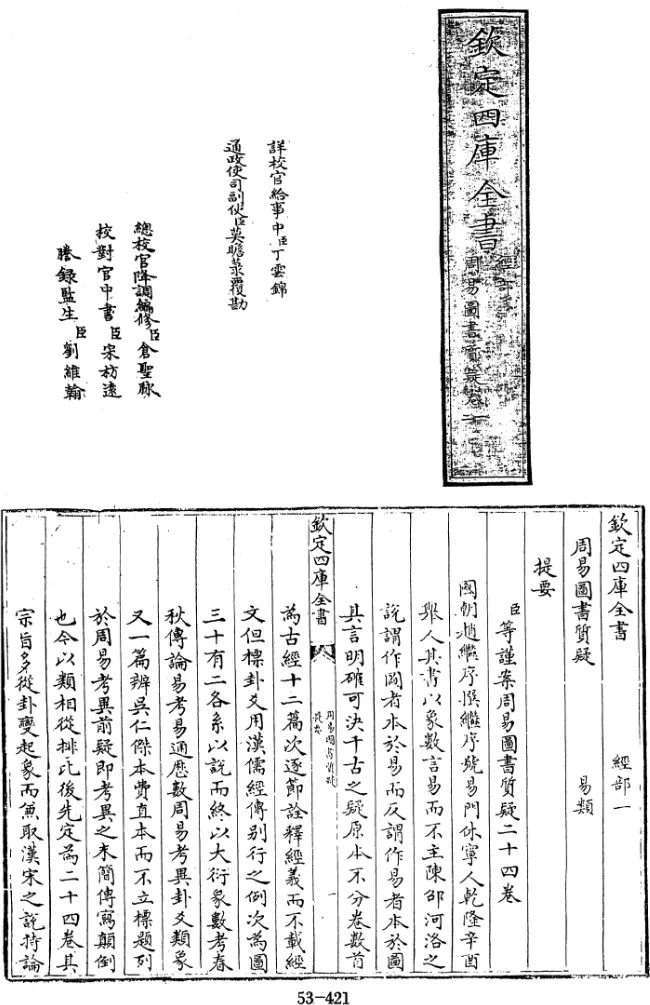 欽定四庫全書
經部
周易圖書質疑卷一
詳校官給事中臣丁雲錦
通政使司副使臣莫瞻菉覆勘
總校官降調編修臣倉聖脉
校對官中書臣宋枋遠
謄錄監生臣劉維翰
欽定四庫全書 經部一
周易圖書質疑 易類
提要
臣等謹案周易圖書質疑二十四卷
國朝趙繼序撰繼序號易門休寧人乾隆辛酉
舉人其書以象數言易而不主陳邵河洛之
說謂作圖者本於易而反謂作易者本於圖
其言明確可決千古之疑原本不分卷數前
欽定四庫全書
周易圖書質疑
提要
一
為古經十二篇次逐節詮釋經義而不載經
文但標卦爻用漢儒經傳别行之例次為圖
三十有二各系以說而終以大衍象數考春
秋傳論易考易通歷數周易考異卦爻類象
又一篇辨吳仁傑本費直本而不立標題列
於周易考異前疑即考異之末簡傳寫顛倒
也今以類相從排比後先定為二十四卷其
宗旨多從卦變起象而兼取漢宋之說持論
53-421